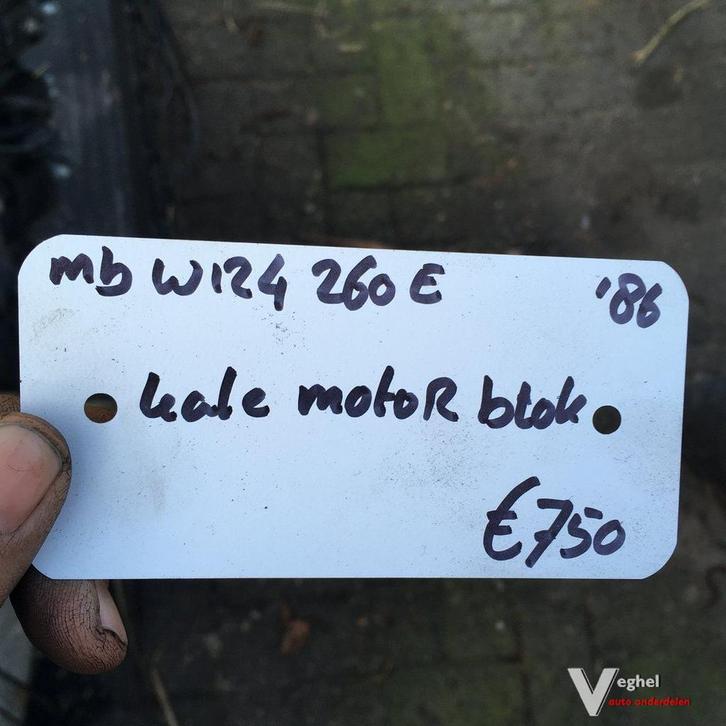 mb W124 260 E '86
kale motoR blok
€750
Veghel
auto onderdelen